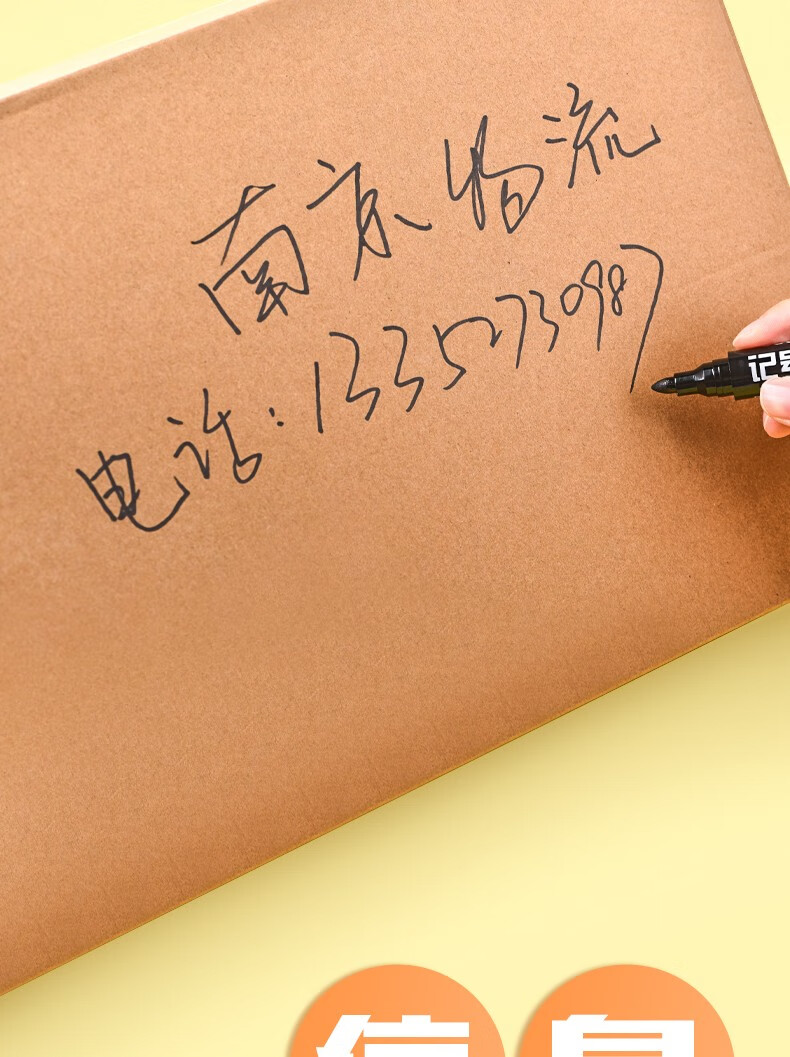 南京物流
电话:13352730987